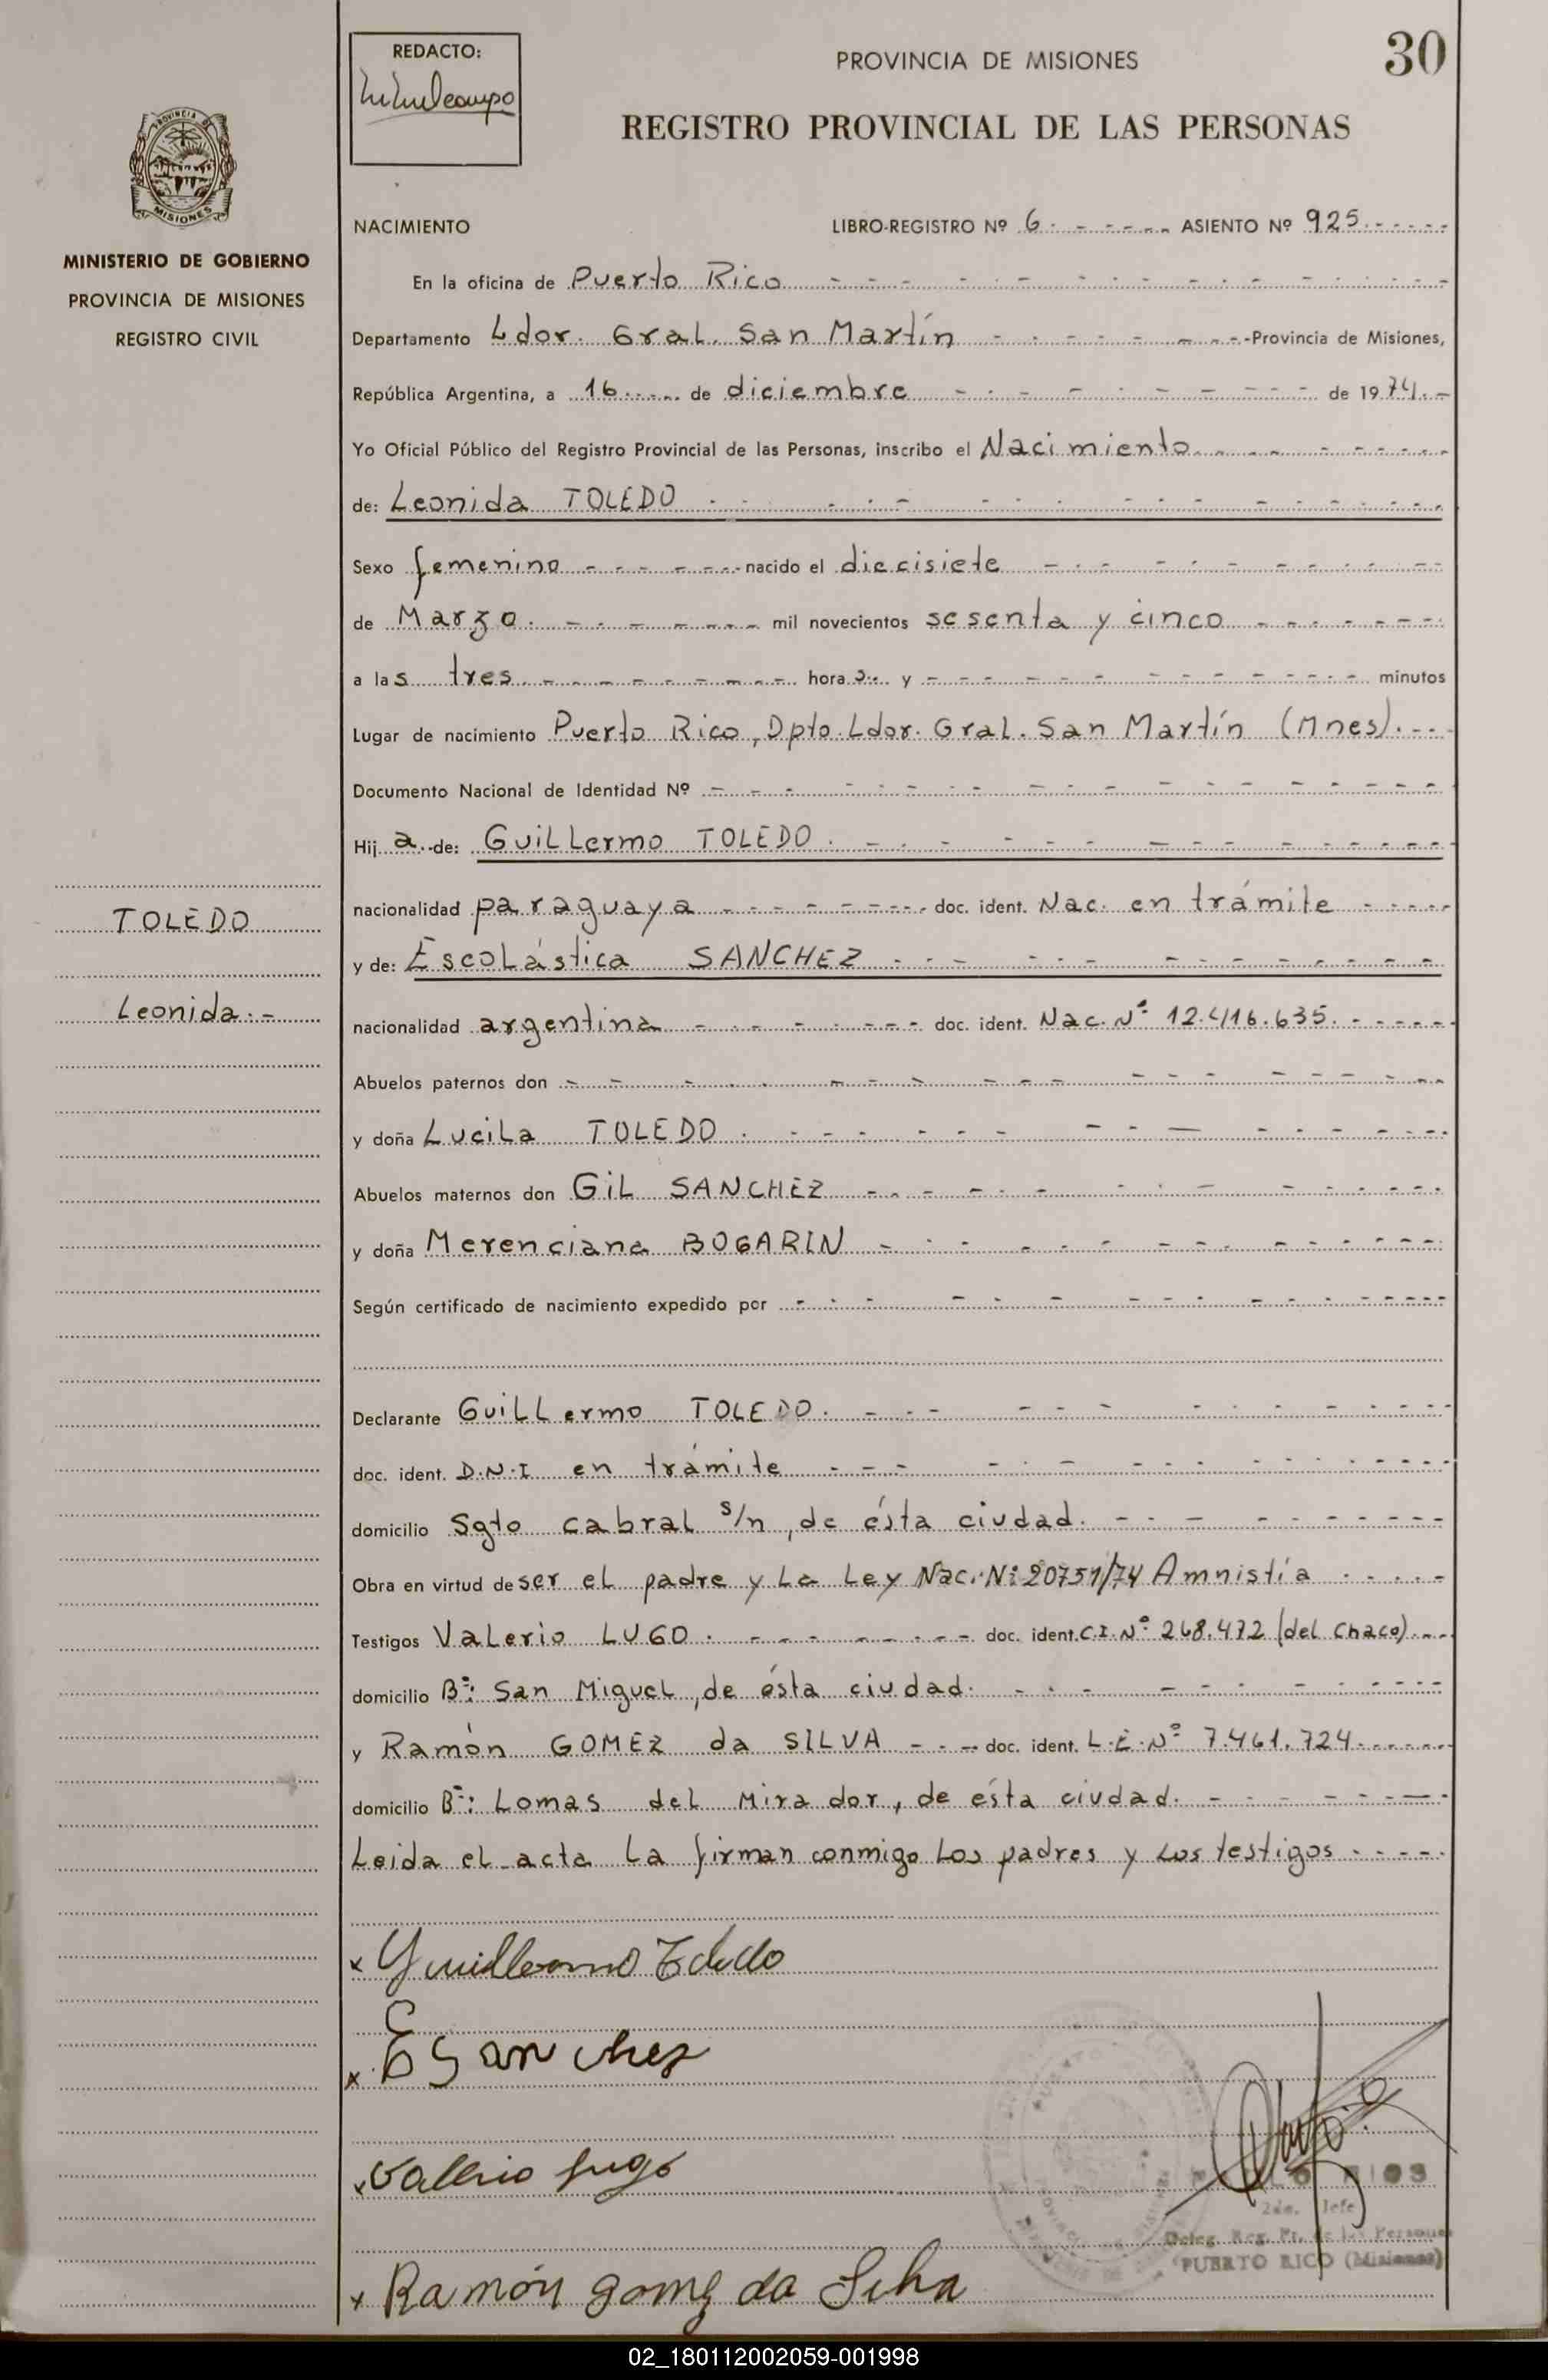 REDACTO:
PROVINCIA DE MISIONES
30
REGISTRO PROVINCIAL DE LAS PERSONAS
MISIONES
MINISTERIO DE GOBIERNO
PROVINCIA DE MISIONES
REGISTRO CIVIL
NACIMIENTO LIBRO-REGISTRO Nº 6 ASIENTO Nº 925
En la oficina de Puerto Rico
Departamento Ldor. Gral. San Martín Provincia de Misiones,
República Argentina, a 16 de diciembre de 1974.
Yo Oficial Público del Registro Provincial de las Personas, inscribo el Nacimiento
de: Leonida TOLEDO
Sexo femenino nacido el diecisiete
de Marzo. mil novecientos sesenta y cinco
a las tres hora s y minutos
Lugar de nacimiento Puerto Rico, Dpto. Ldor. Gral. San Martín (Mnes).
Documento Nacional de Identidad Nº
Hij a de: Guillermo TOLEDO.
nacionalidad paraguaya doc. ident. Nac. en trámite
y de: Escolástica SANCHEZ
nacionalidad argentina doc. ident. Nac. Nº 12.416.635.
Abuelos paternos don
y doña Lucila TOLEDO.
Abuelos maternos don Gil SANCHEZ
y doña Merenciana BOGARIN
Según certificado de nacimiento expedido por
Declarante Guillermo TOLEDO.
doc. ident. D.N.I en trámite
domicilio Sgto cabral s/n, de ésta ciudad.
Obra en virtud de ser el padre y la Ley Nac. Nº 20751/74 Amnistía
Testigos Valerio LUGO. doc. ident. C.I. Nº 268.472 (del Chaco).
domicilio Bº: San Miguel, de ésta ciudad.
y Ramón GOMEZ da SILVA doc. ident. L.E. Nº 7.461.724.
domicilio Bº: Lomas del Mirador, de ésta ciudad.
Leida el acta la firman conmigo los padres y los testigos
TOLEDO
Leonida.
x Guillermo Toledo
x E Sanchez
x Valerio Lugo
2do. Jefe
Deleg. Reg. Pr. de las Personas
PUERTO RICO (Misiones)
x Ramón gomez da Silva
02_180112002059-001998